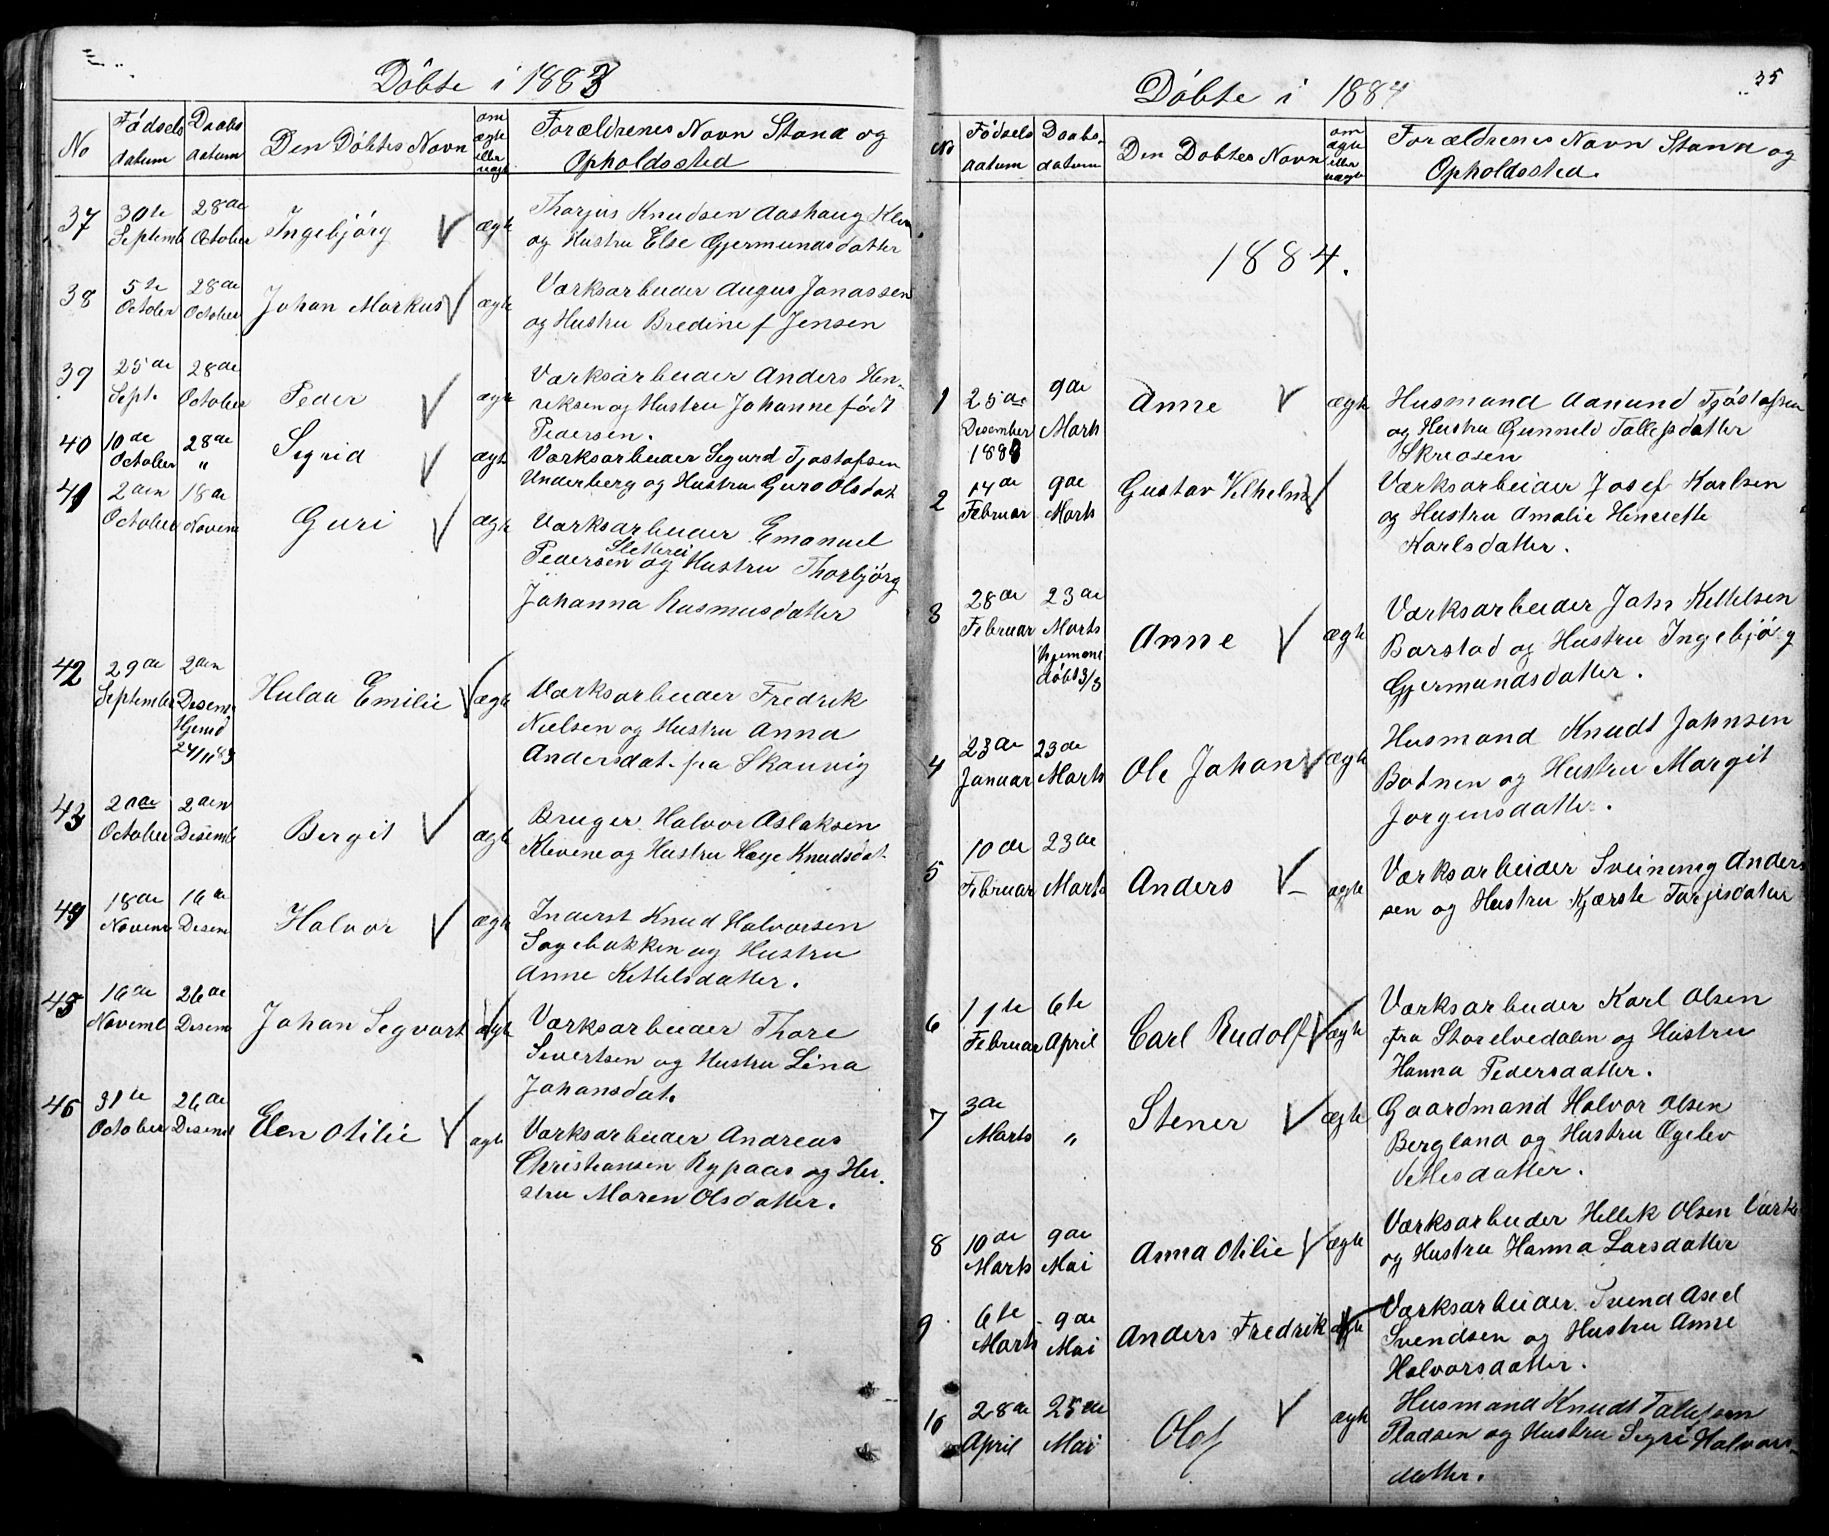 Döbte i 1883
No
Födsels datum
Daabs datum
Den Döbtes Navn
om ægte eller uægte
Forældrenes Navn Stand og Opholdssted
37
30te Septemb
28de October
Ingebjörg
ægte
Thorjus Knudsen Aashaug
og Hustru Else Gjermundsdatter
38
5te October
28de October
Johan Markus
ægte
Værksarbeider August Jonassen
og Hustru Bredine f Jensen
39
25de Sept.
28de October
Peder
ægte
Værksarbeider Anders Hen-
riksen og Hustru Johanne født
Pedersen.
40
10de October
28de "
Sigrid
ægte
Værksarbeider Sigurd Tjostofsen
Underberg og Hustru Guro Olsdat
41
2den October
18de Novem
Guri
ægte
Værksarbeider Emanuel
Pedersen Sletterei og Hustru Thorbjörg
Johanna Rasmusdatter
42
29de September
2den Desem
Hjemd
24/11 83
Hulda Emilie
ægte
Værksarbeider Fredrik
Nielsen og Hustru Anna
Andersdat. fra Skauvig
43
20de October
2den Desemb
Bergit
ægte
Bruger Halvor Aslaksen
Klevene og Hustru Hæge Knudsdat
44
18de Novem
16de Desem
Halvor
ægte
Inderst Knud Halvorsen
Sagebakken og Hustru
Anne Kettelsdatter.
45
16de Novemb
26de Desem
Johan Segvart
ægte
Værksarbeider Thore
Sivertsen og Hustru Lina
Johansdat.
46
31te October
26de Desemb
Elen Otilie
ægte
Værksarbeider Andreas
Christiansen Rypaas og Hu-
stru Maren Olsdatter.
Döbte i 1884
35
No
Födsels datum
Daabs-datum
Den Döbtes Navn
om ægte eller uægte
Forældrenes Navn Stand og Opholdssted.
1884.
1
25de Desember 1883
9de Marts
Anne
ægte
Husmand Aanund Tjöstofsen
og Hustru Gunnild Tollefsdatter
Skreosen
2
14de Februar
9de Marts
Gustav Vilhelm
Værksarbeider Josef Karlsen
og Hustru Amalie Henriette
Karlsdatter.
3
28de Februar
23de Marts
hjemme döbt 3/3
Anne
ægte
Værksarbeider John Kittelsen
Barstad og Hustru Ingebjörg
Gjermundsdatter.
4
23de Januar
23de Marts
Ole Johan
ægte
Husmand Knudt Johnsen
Botnen og Hustru Margit
Jorgensdatter.
5
10de Februar
23de Marts
Anders
ægte
Værksarbeider Sveinung Anders
sen og Hustru Kjærste Targisdatter
6
11te Februar
6te April
Carl Rudolf
ægte
Værksarbeider Karl Olsen
fra Storelvedalen og Hustru
Hanna Pedersdatter.
7
3de Marts
"
Stener
ægte
Gaardmand Halvor Olsen
Bergland og Hustru Ogelev
Vetlesdatter.
8
10de Marts
9de Mai
Anna Otilie
ægte
Værksarbeider Hellik Olsen Værke
og Hustru Hanna Larsdatter
9
6te Marts
9de Mai
Anders Fredrik
ægte
Værksarbeider Svend Axel
Svendsen og Hustru Anne
Halvorsdatter.
10
28de April
25de Mai
Olaf
ægte
Husmand Knudt Tallefsen
Pladsen og Hustru Sigri Halvors-
datter.